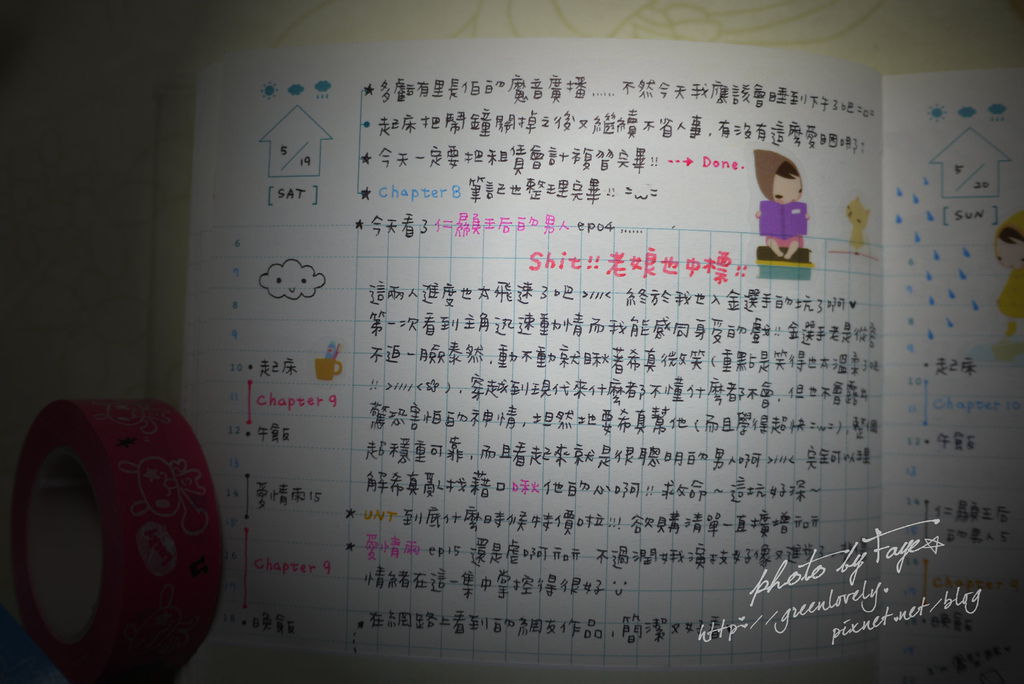 ★ 多虧有里長伯的魔音廣播...... 不然今天我應該會睡到下午3吧 =0=
● 起床把鬧鐘關掉之後又繼續不省人事, 有沒有這麼愛睏啊?
★ 今天一定要把租賃會計複習完畢!! --→ Done.
★ Chapter 8 筆記也整理完畢!! =ω=
5/19
[SAT]
★ 今天看了仁顯王后的男人 ep04......
Shit!! 老娘也中標!!
這兩人進度也太飛速了吧 >///< 終於我也入金選手的坑了啊♥
第一次看到主角迅速動情而我能感同身受的戲!! 金選手老是從容
不迫一臉泰然, 動不動就瞅著希真微笑 (重點是笑得也太溫柔了吧
!! >///< ), 穿越到現代來什麼都不懂什麼都不會, 但也不會露出
驚恐害怕的神情, 坦然地要希真幫他 (而且學得超快 =ω=), 整個
超穩重可靠, 而且看起來就是很聰明的男人啊 >///< 完全可以理
解希真亂找藉口啾他的心啊!! 求救命~ 這坑好深~
★ UNT 到底什麼時候特價啦!!! 欲購清單一直擴增
★ 愛情雨 ep15 還是虐啊 不過潤妹演技好像又進
情緒在這一集中掌控得很好
● 在網路上看到的網友作品, 簡潔又好
6
7
8
9
10 • 起床
11 Chapter 9
12 • 午飯
13
14 愛情雨15
15
16 Chapter 9
17
18 • 晚飯
5/20
[SUN]
8
9
• 起床
10
11 Chapter 10
12 • 午飯
13
14 仁顯王后
的男人5
16 Chapter
• 晚飯
photo by Faye☆
http://greenlovely.
pixnet.net/blog